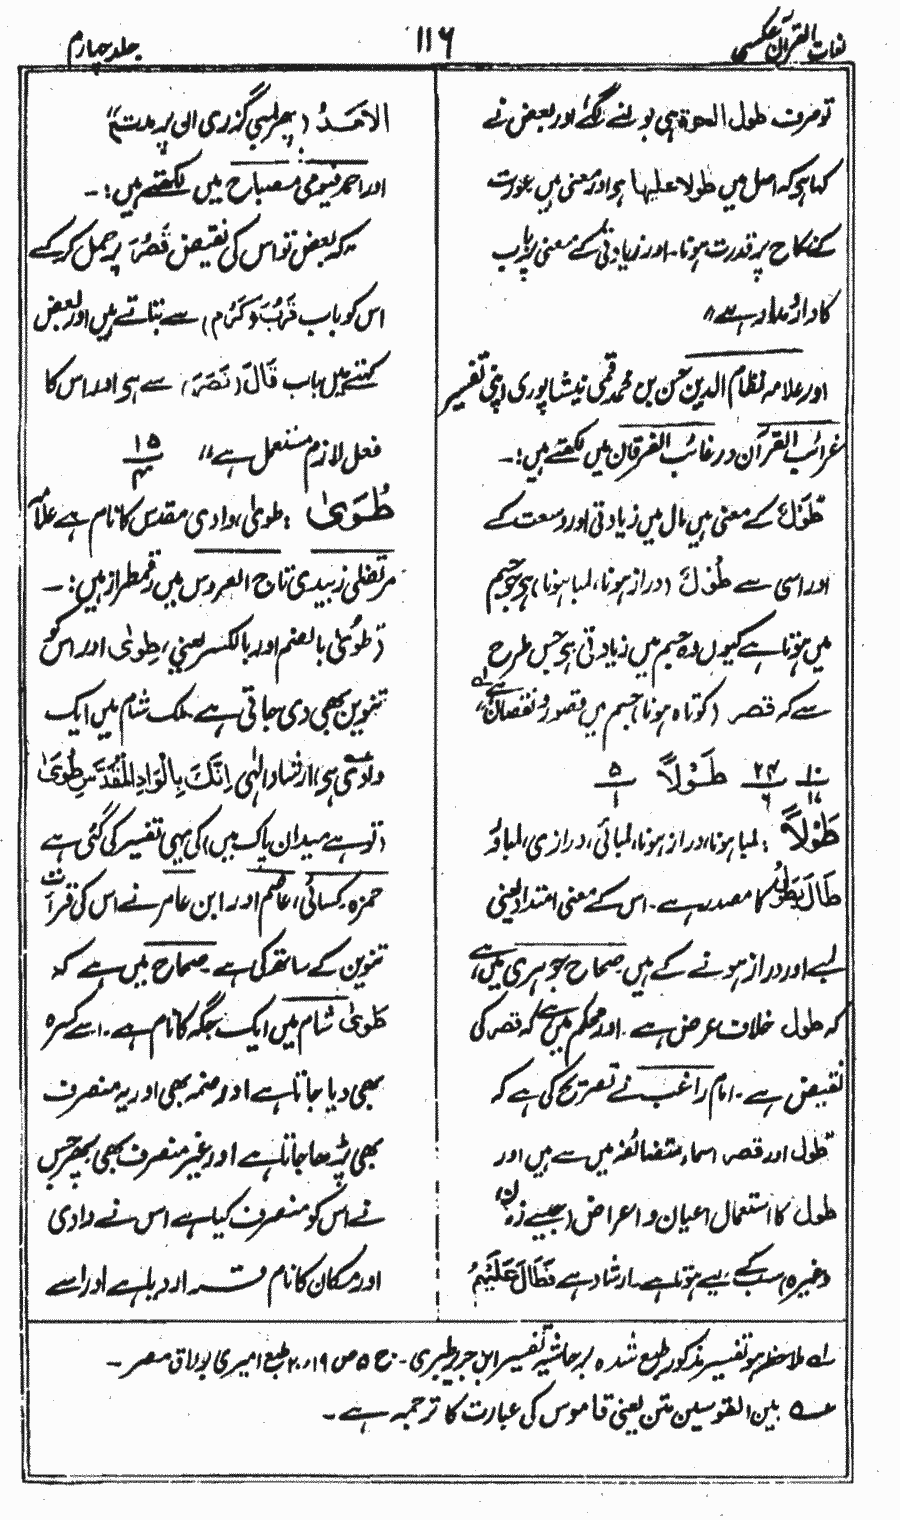 لغات القرآن عکسی
۱۱۶
جلد چہارم
تو صرف طول الحرۃ ہی بولنے لگے اور بعض نے
کہا ہو کہ اصل میں طولا علیہا ہو اور معنی میں عورت
کے نکاح پر قدرت ہونا۔ اور زیادتی کے معنی پر باب
کا دار و مدار ہے"
اور علامہ نظام الدین حسن بن محمد قمی نیشاپوری اپنی تفسیر
غرائب القرآن و رغائب الفرقان میں لکھتے ہیں:۔
طَوْلٌ کے معنی ہیں مال میں زیادتی اور وسعت کے
اور اسی سے طُوْلٌ (دراز ہونا، لمبا ہونا) ہی جو جسم
میں ہوتا ہے کیوں وہ جسم میں زیادتی ہی جس طرح
سے کہ قصر (کوتاہ ہونا) جسم میں قصور و نقصان ہے"
۱۰ ۲۴ طَوْلًا ۵
۱۷ ۶ ۱
طُوْلًا: لمبا ہونا، دراز ہونا، لمبائی، درازی، لمباؤ
طَالَ یَطُوْلُ کا مصدر ہے۔ اس کے معنی امتداد یعنی
لمبے اور دراز ہونے کے ہیں۔ صحاح جوہری میں ہے
کہ طول خلاف عرض ہے۔ اور محکم میں ہے کہ قصر کی
نقیض ہے۔ امام راغب نے تصریح کی ہے کہ
طول اور قصر اسماء متضائفہ میں سے ہیں اور
طول کا استعمال اعیان و اعراض (جیسے زمان
وغیرہ) سب کے لیے ہوتا ہے۔ ارشاد ہے فَطَالَ عَلَیْہِمُ
الْاَمَدُ (پھر لمبی گزری ان پر مدت)"
اور احمد فیومی مصباح میں لکھتے ہیں:۔
"کہ بعض تو اس کی نقیض قَصُرَ پر حمل کر کے
اس کو باب قَرُبَ و کَرُمَ) سے بتاتے ہیں اور بعض
کہتے ہیں باب قَالَ (نَصَرَ) سے ہی اور اس کا
فعل لازم مستعمل ہے" ۱۵
۴
طُوًی: طویٰ، وادی مقدس کا نام ہے علامہ
مرتضٰی زبیدی تاج العروس میں رقمطراز ہیں:۔
(طویٰ بالضم اور بالکسر یعنی، طِویٰ اور اس کو
تنوین بھی دی جاتی ہے۔ ملک شام میں ایک
وادی ہی، ارشاد الٰہی اِنَّکَ بِالْوَادِ الْمُقَدَّسِ طُوًی
(تو ہے میدان پاک میں) کی یہی تفسیر کی گئی ہے
حمزہ، کسائی، عاصم اور ابن عامر نے اس کی قرأت
تنوین کے ساتھ کی ہے۔ صحاح میں ہے کہ
طُویٰ شام میں ایک جگہ کا نام ہے۔ اسے کسرہ
بھی دیا جاتا ہے اور ضمہ بھی اور یہ منصرف
بھی پڑھا جاتا ہے اور غیر منصرف بھی پھر جس
نے اس کو منصرف کیا ہے اس نے وادی
اور مکان کا نام قرار دیا ہے اور اسے
لہ ملاحظہ ہو تفسیر مذکور طبع شدہ بر حاشیہ تفسیر ابن جریر طبری۔ ج ۵ ص ۱۹، ۲۰ طبع امیری بولاق مصر۔
عہ بین القوسین متن یعنی قاموس کی عبارت کا ترجمہ ہے۔